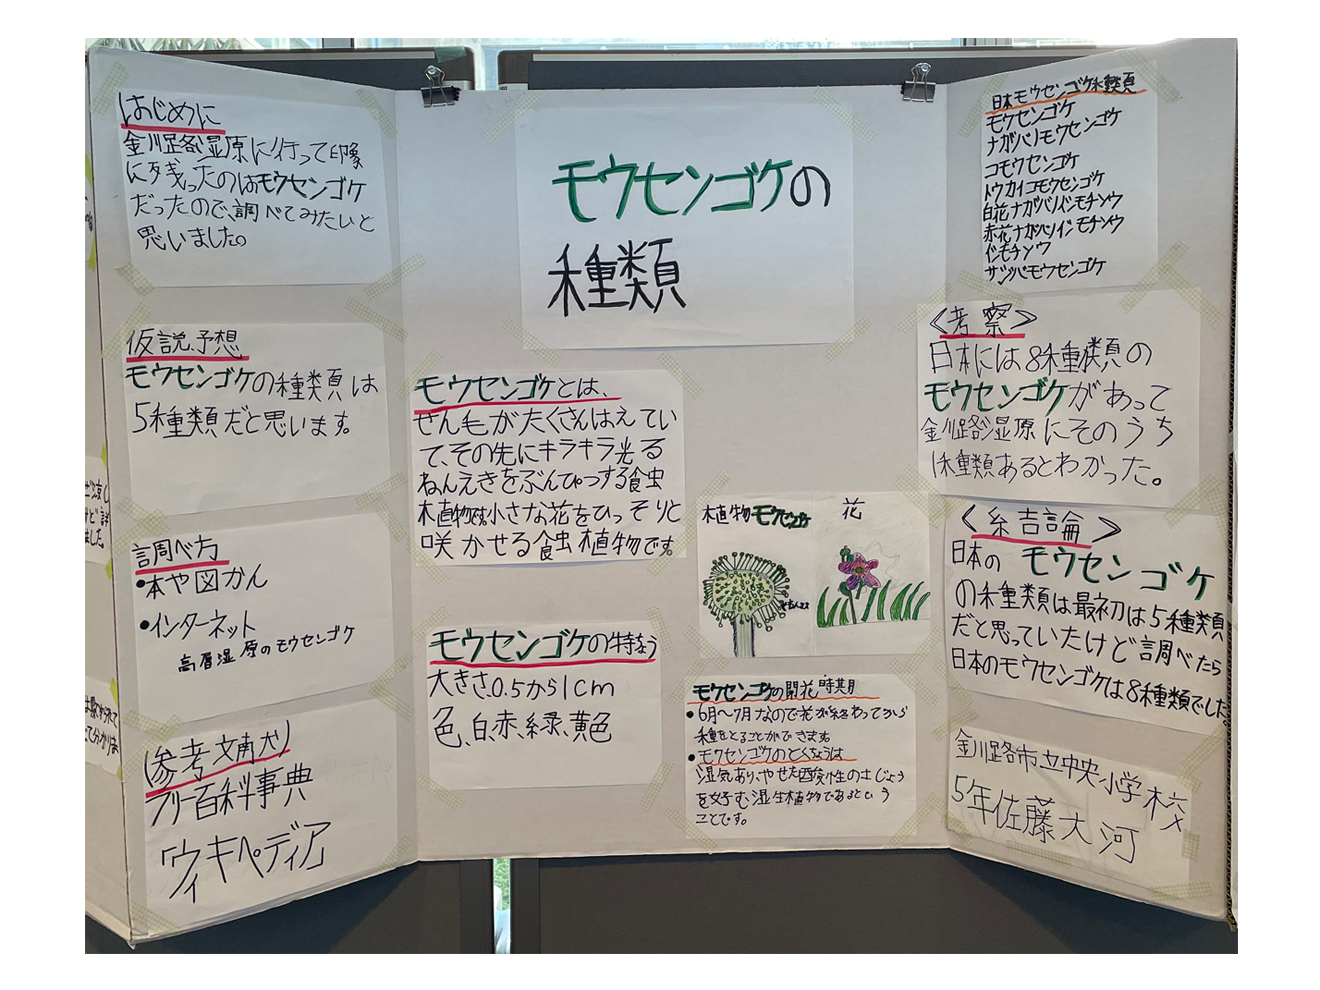 はじめに
釧路湿原に行って印象
に残ったのはモウセンゴケ
だったので、調べてみたいと
思いました。
仮説、予想
モウセンゴケの種類は
5種類だと思います。
調べ方
•本や図かん
•インターネット
高層湿原のモウセンゴケ
(参考文献)
フリー百科事典
「ウィキペディア」
モウセンゴケの
種類
モウセンゴケとは、
せん毛がたくさんはえてい
て、その先にキラキラ光る
ねんえきをぶんぴつする食虫
植物です。小さな花をひっそりと
咲かせる食虫植物です。
モウセンゴケの特ちょう
大きさ0.5から1cm
色、白、赤、緑、黄色
植物モウセンゴケ
花
モウセンゴケの開花時期
•6月〜7月なので花が終わってから
種をとることができます。
•モウセンゴケのとくちょうは
湿気あり、やせた酸性の土じょう
を好む湿生植物であるという
ことです。
日本モウセンゴケ種類
モウセンゴケ
ナガバノモウセンゴケ
コモウセンゴケ
トウカイコモウセンゴケ
白花ナガバノイシモチソウ
赤花ナガバノイシモチソウ
イシモチソウ
サジバモウセンゴケ
〈考察〉
日本には8種類の
モウセンゴケがあって
釧路湿原にそのうち
1種類あるとわかった。
〈結論〉
日本のモウセンゴケ
の種類は最初は5種類
だと思っていたけど調べたら
日本のモウセンゴケは8種類でした。
釧路市立中央小学校
5年佐藤大河